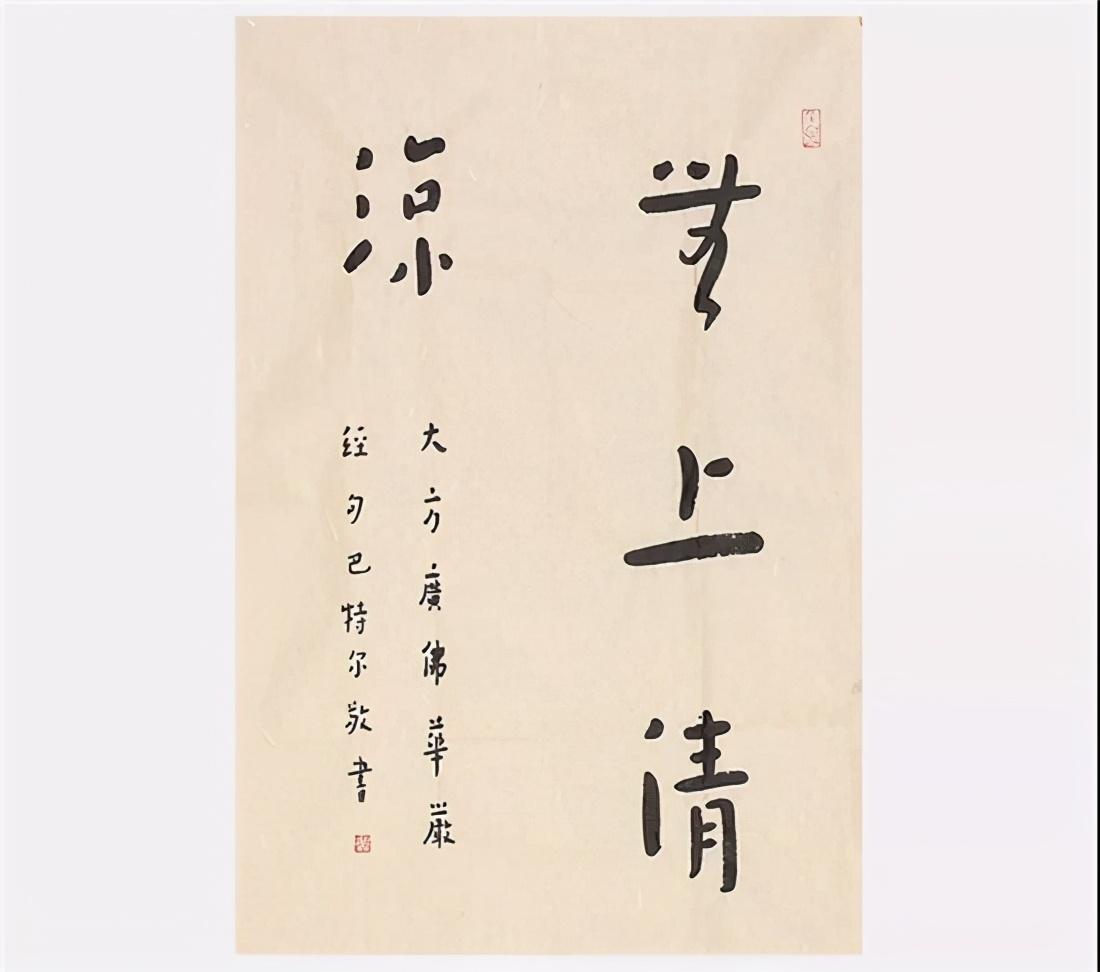 無上清
涼
大方廣佛華嚴
經句巴特尔敬書